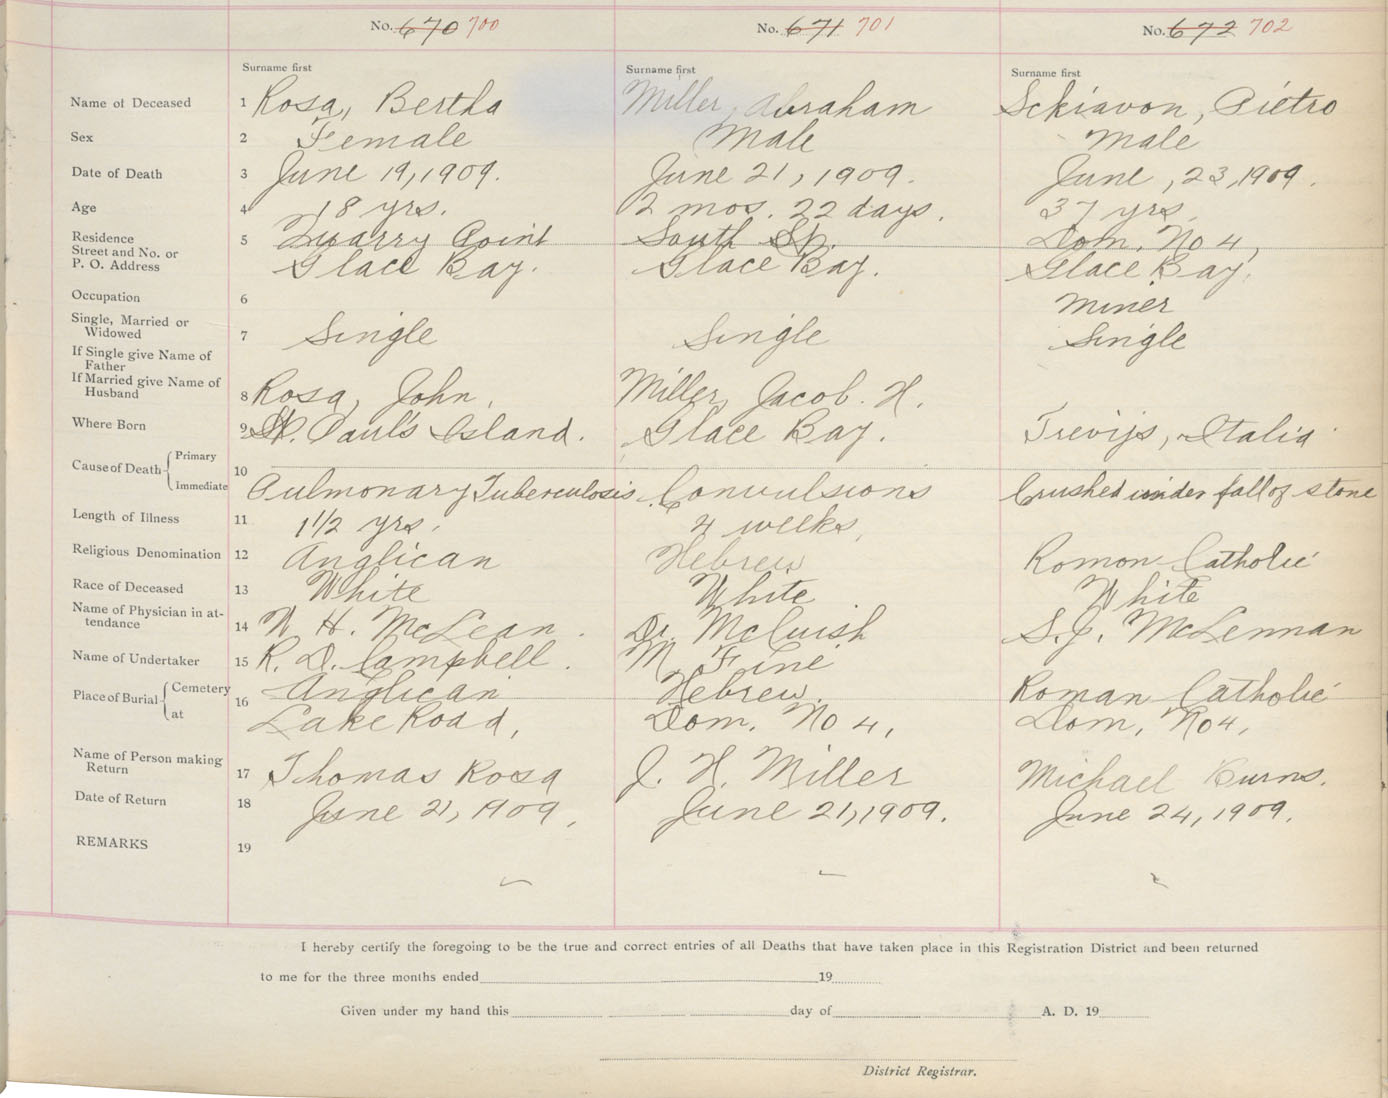 No. 670 700 No. 671 701 No. 672 702
Surname first Surname first Surname first
Name of Deceased 1 Rosa, Bertha Miller, Abraham Schiavon, Pietro
Sex 2 Female Male Male
Date of Death 3 June 19, 1909. June 21, 1909. June, 23, 1909.
Age 4 18 yrs. 2 mos. 22 days. 37 yrs.
Residence 5 Quarry Point South St. Dom. No 4,
Street and No. or
P. O. Address Glace Bay. Glace Bay. Glace Bay.
Occupation 6 Miner
Single, Married or
Widowed 7 Single Single Single
If Single give Name of
Father
If Married give Name of
Husband 8 Rosa, John. Miller, Jacob. H.
Where Born 9 St. Paul's Island. Glace Bay. Trevijs, Italia
Cause of Death Primary
Immediate 10 Pulmonary Tuberculosis Convulsions Crushed under fall of stone
Length of Illness 11 1 1/2 yrs. 4 weeks,
Religious Denomination 12 Anglican Hebrew Roman Catholic
Race of Deceased 13 White White White
Name of Physician in at-
tendance 14 W H. McLean. Dr. McCuish S. J. McLennan
Name of Undertaker 15 R. D. Campbell. M Fine
Place of Burial Cemetery 16 Anglican Hebrew Roman Catholic
at Lake Road, Dom. No 4, Dom, No 4,
Name of Person making
Return 17 Thomas Rosa J. H. Miller Michael Burns.
Date of Return 18 June 21, 1909, June 21, 1909. June 24, 1909.
REMARKS 19
I hereby certify the foregoing to be the true and correct entries of all Deaths that have taken place in this Registration District and been returned
to me for the three months ended 19
Given under my hand this day of A. D. 19
District Registrar.